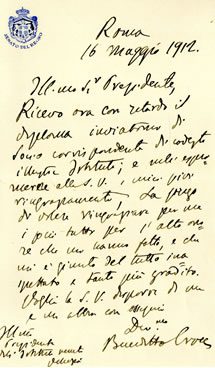 SENATO DEL REGNO
Roma
16 maggio 1912.
Ill.mo Sr Presidente,
Ricevo ora con ritardo il
diploma inviatomi di
Socio corrispondente di codesto
illustre Istituto; e nell'espri-
mere alla S. V. i miei vivi
ringraziamenti, La prego
di volere ringraziare per me
i più tutti per l'alto ono-
re che mi hanno fatto, e che
mi è giunto del tutto ina-
spettato e tanto più gradito.
Voglia la S. V. disporre di me
e mi abbia con
Dev.mo
Benedetto Croce
Ill.mo
Presidente
Istituto veneto
Venezia